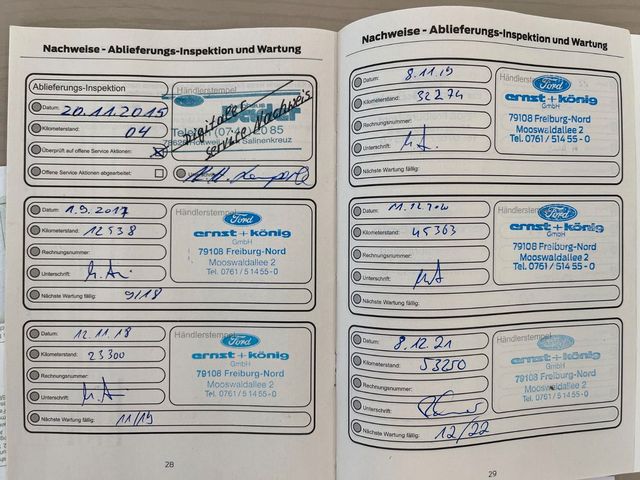 Nachweise - Ablieferungs-Inspektion und Wartung
Ablieferungs-Inspektion
Händlerstempel
Datum: 20.11.2015
Kilometerstand: 04
Überprüft auf offene Service Aktionen:
Offene Service Aktionen abgearbeitet:
Digitaler
Service Nachweis
Datum: 1.9.2017
Kilometerstand: 12538
Rechnungsnummer:
Unterschrift:
Nächste Wartung fällig: 9/18
Händlerstempel
Ford
ernst+könig
GmbH
79108 Freiburg-Nord
Mooswaldallee 2
Tel. 0761/51455-0
Datum: 12.11.18
Kilometerstand: 23300
Rechnungsnummer:
Unterschrift:
Nächste Wartung fällig: 11/19
Händlerstempel
Ford
ernst+könig
GmbH
79108 Freiburg-Nord
Mooswaldallee 2
Tel. 0761/51455-0
28
Nachweise - Ablieferungs-Inspektion und Wartung
Datum: 8.11.19
Kilometerstand: 32274
Rechnungsnummer:
Unterschrift:
Händlerstempel
Ford
ernst+könig
GmbH
79108 Freiburg-Nord
Mooswaldallee 2
Tel. 0761/51455-0
Datum:
Kilometerstand: 45363
Rechnungsnummer:
Unterschrift:
Nächste Wartung fällig:
Händlerstempel
Ford
ernst+könig
GmbH
79108 Freiburg-Nord
Mooswaldallee 2
Tel. 0761/51455-0
Datum: 8.12.21
Kilometerstand: 53250
Rechnungsnummer:
Unterschrift:
Nächste Wartung fällig: 12/22
Händlerstempel
Ford
ernst+könig
GmbH
79108 Freiburg-Nord
Mooswaldallee 2
Tel. 0761/51455-0
29